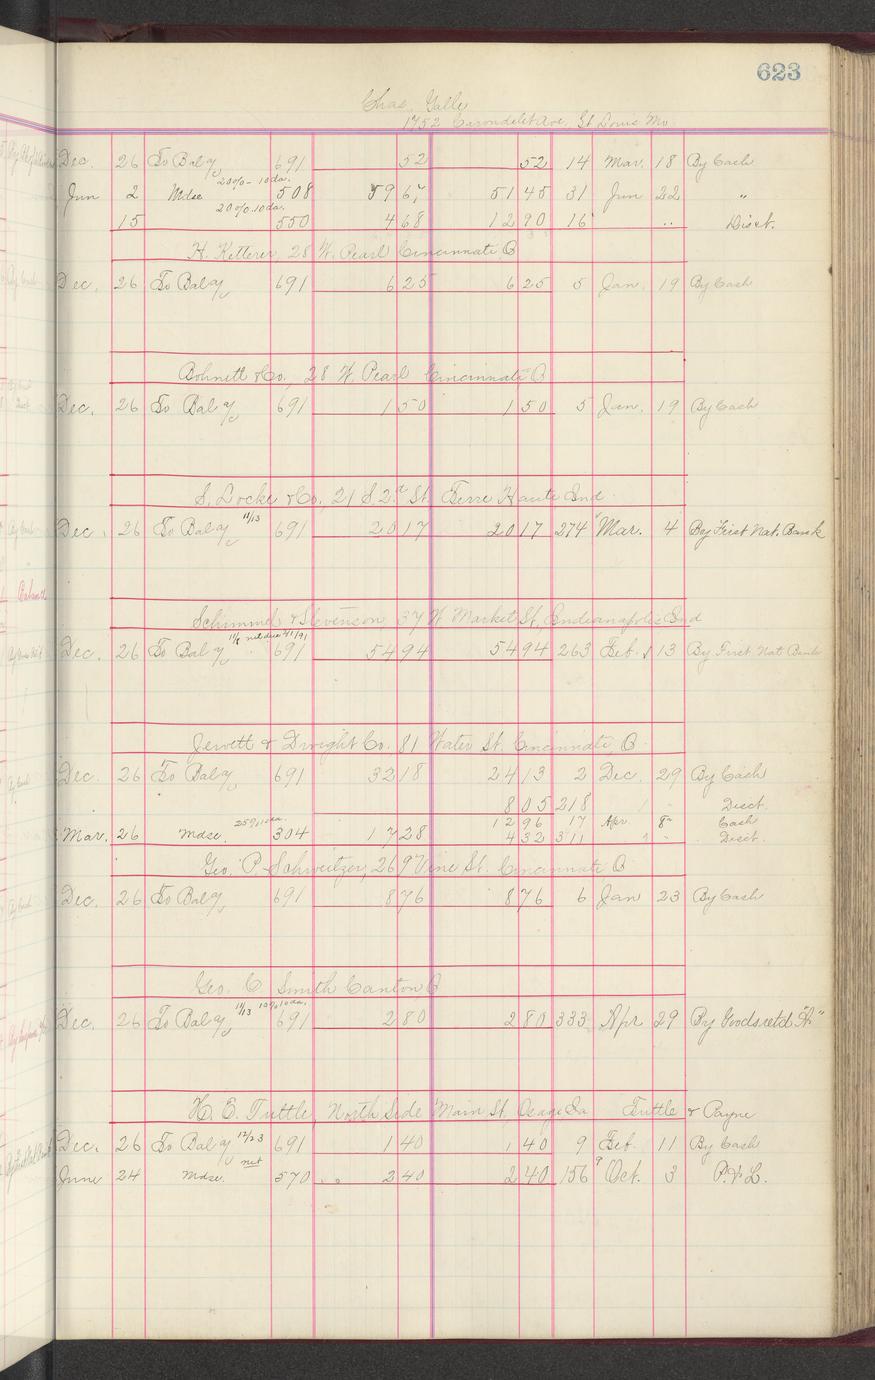 623
Chas. Galle
1752 Carondelet Ave. St Louis Mo
Dec. 26 To Bal 691 52 52 14 Mar. 18 By Cash
20% - 10 da.
Jun 2 Mdse 508 59 67 51 45 31 Jun 22 "
20% 10 da.
15 550 4 68 12 90 16 " Disct.
H. Ketterer, 28 W. Pearl Cincinnati O
Dec. 26 To Bal 691 6 25 6 25 5 Jan. 19 By Cash
Bohnett & Co., 28 W. Pearl Cincinnati O
Dec. 26 To Bal 691 1 50 1 50 5 Jan. 19 By Cash
S. Locke & Co. 21 S. 2d St. Terre Haute Ind
Dec. 26 To Bal 11/13 691 20 17 20 17 274 Mar. 4 By First Nat. Bank
Schimmel & Stevenson 37 W Market St, Indianapolis Ind
Dec. 26 To Bal 691 54 94 54 94 263 Feb. 13 By First Nat Bank
Jewett & Dwight Co. 81 Water St. Cincinnati, O
Dec. 26 To Bal 691 32 18 24 13 2 Dec. 29 By Cash
8 05 218 Disct.
12 96 17 Apr 8 Cash
Mar. 26 Mdse. 25% 10 da. 304 17 28 4 32 311 " Disct.
Geo. P. Schweitzer, 269 Vine St. Cincinnati O
Dec. 26 To Bal 691 8 76 8 76 6 Jan 23 By Cash
Geo. C. Smith Canton O
Dec. 26 To Bal 11/13 10% 10 da. 691 2 80 2 80 333 Apr 29 By Goods retd "A"
H. E. Tuttle, North Side Main St, Osage Ia Tuttle & Payne
Dec. 26 To Bal 12/23 691 1 40 1 40 9 Feb. 11 By Cash
June 24 Mdse. net 570 2 40 2 40 156 Oct. 3 P. & L.